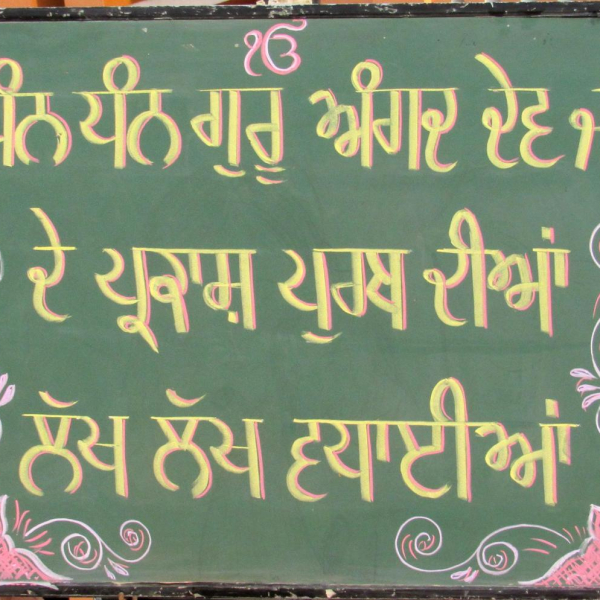 ੴ
ਧੰਨ ਧੰਨ ਗੁਰੂ ਅੰਗਦ ਦੇਵ
ਦੇ ਪ੍ਰਕਾਸ਼ ਪੁਰਬ ਦੀਆਂ
ਲੱਖ ਲੱਖ ਵਧਾਈਆਂ